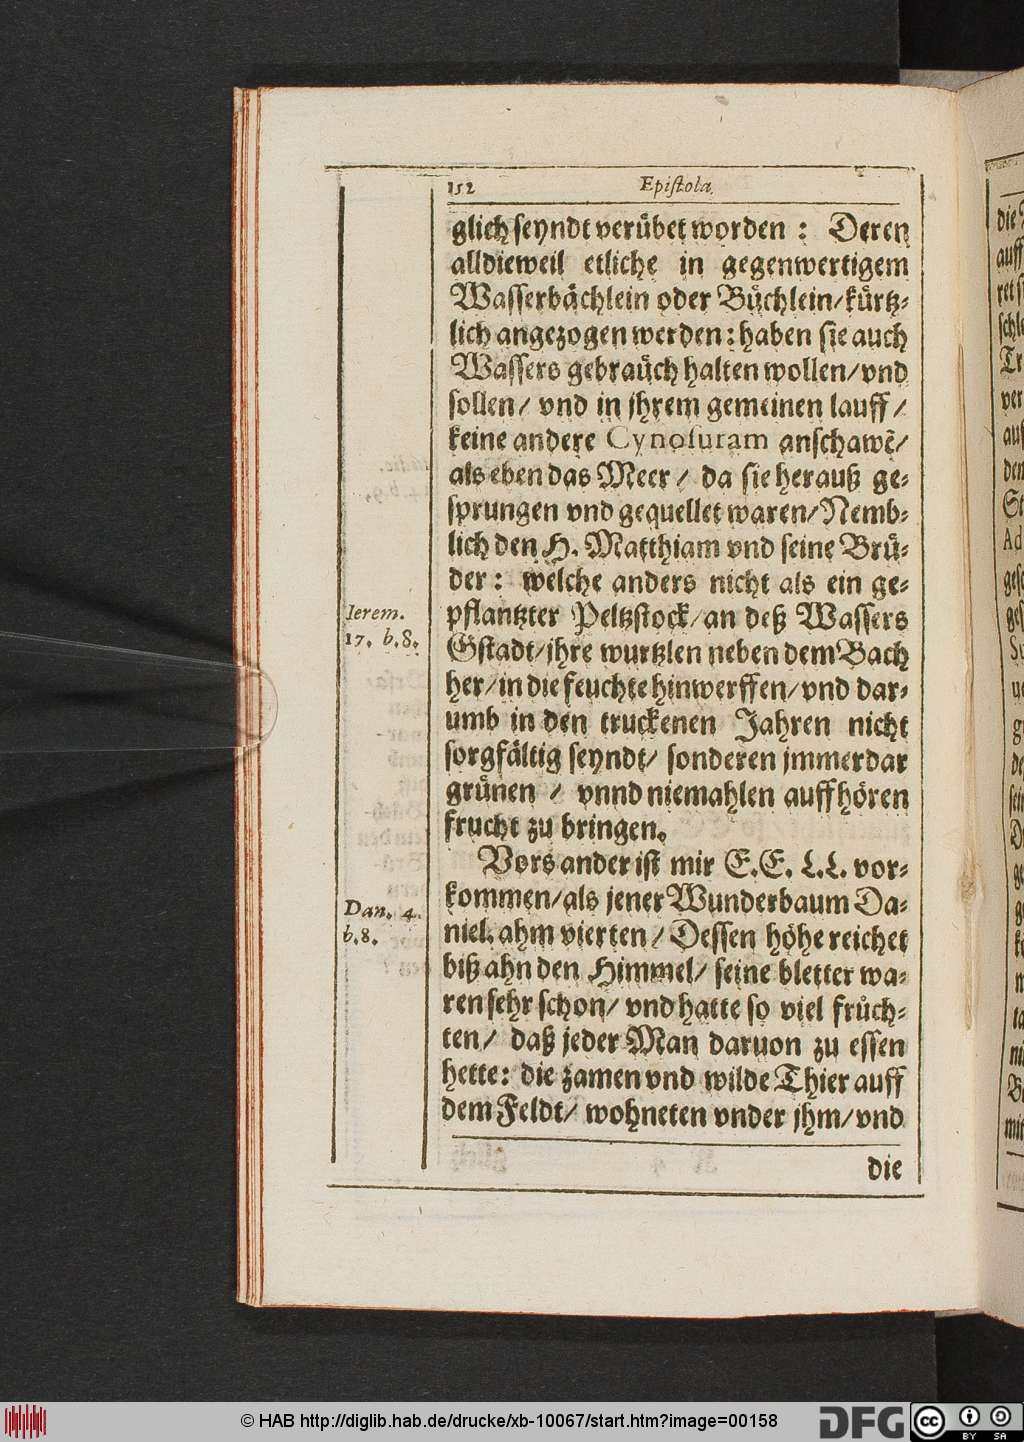 152 Epistola.
glich seyndt verübet worden : Deren
alldieweil etliche in gegenwertigem
Wasserbächlein oder Büchlein/kürtz-
lich angezogen werden: haben sie auch
Wassers gebraüch halten wollen/vnd
sollen/ vnd in jhrem gemeinen lauff/
keine andere Cynosuram anschawẽ/
als eben das Meer/ da sie herauß ge-
sprungen vnd gequellet waren/Nemb-
lich den H. Matthiam vnd seine Brü-
der: welche anders nicht als ein ge-
Ierem.
17. b.8.
pflantzter Peltzstock/an deß Wassers
Gstadt/jhre wurtzlen neben dem Bach
her/in die feuchte hinwerffen/vnd dar-
umb in den truckenen Jahren nicht
sorgfältig seyndt/ sonderen jmmerdar
grünen / vnnd niemahlen auffhören
frucht zu bringen.
Vors ander ist mir E.E. L.L. vor-
kommen/als jener Wunderbaum Da-
Dan. 4.
b.8.
niel. ahm vierten/ Dessen höhe reichet
biß ahn den Himmel/ seine bletter wa-
ren sehr schon/ vnd hatte so viel früch-
ten/ daß jeder Man daruon zu essen
hette: die zamen vnd wilde Thier auff
dem Feldt/ wohneten vnder jhm/vnd
die
© HAB http://diglib.hab.de/drucke/xb-10067/start.htm?image=00158
DFG
cc BY SA